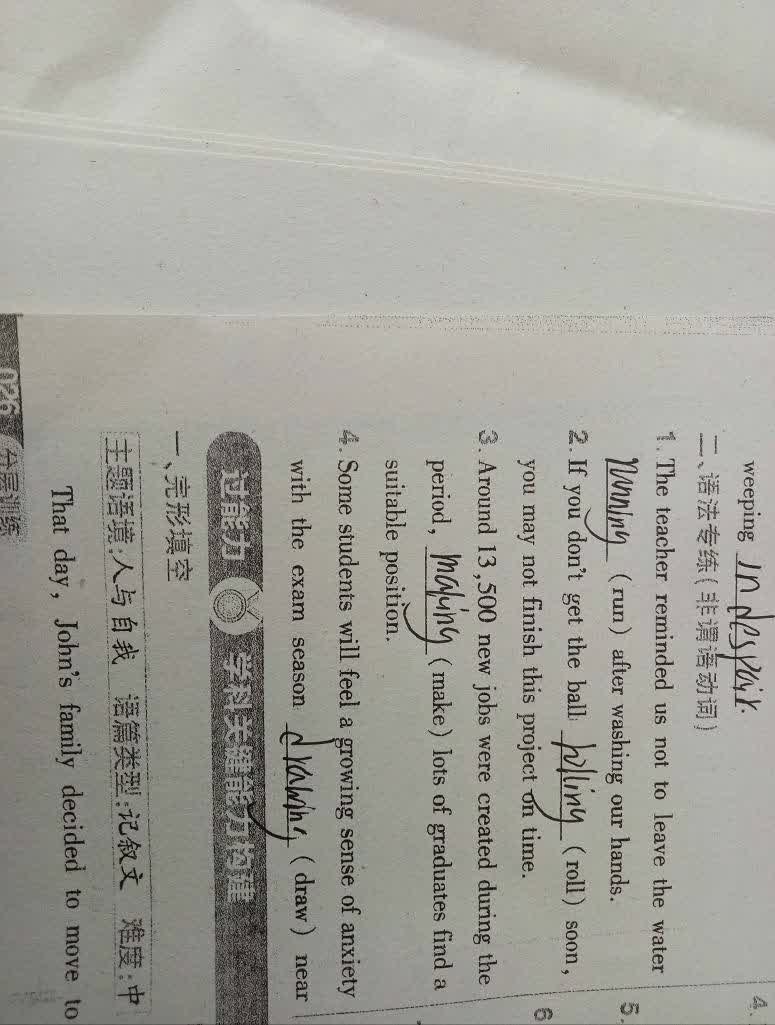 weeping in despair.
二、语法专练(非谓语动词)
1. The teacher reminded us not to leave the water
running (run) after washing our hands.
2. If you don't get the ball rolling (roll) soon,
you may not finish this project on time.
3. Around 13,500 new jobs were created during the
period, making (make) lots of graduates find a
suitable position.
4. Some students will feel a growing sense of anxiety
with the exam season drawing (draw) near
过能力 学科关键能力构建
一、完形填空
主题语境:人与自我 语篇类型:记叙文 难度:中
That day, John's family decided to move to
026 分层训练
4.
5.
6